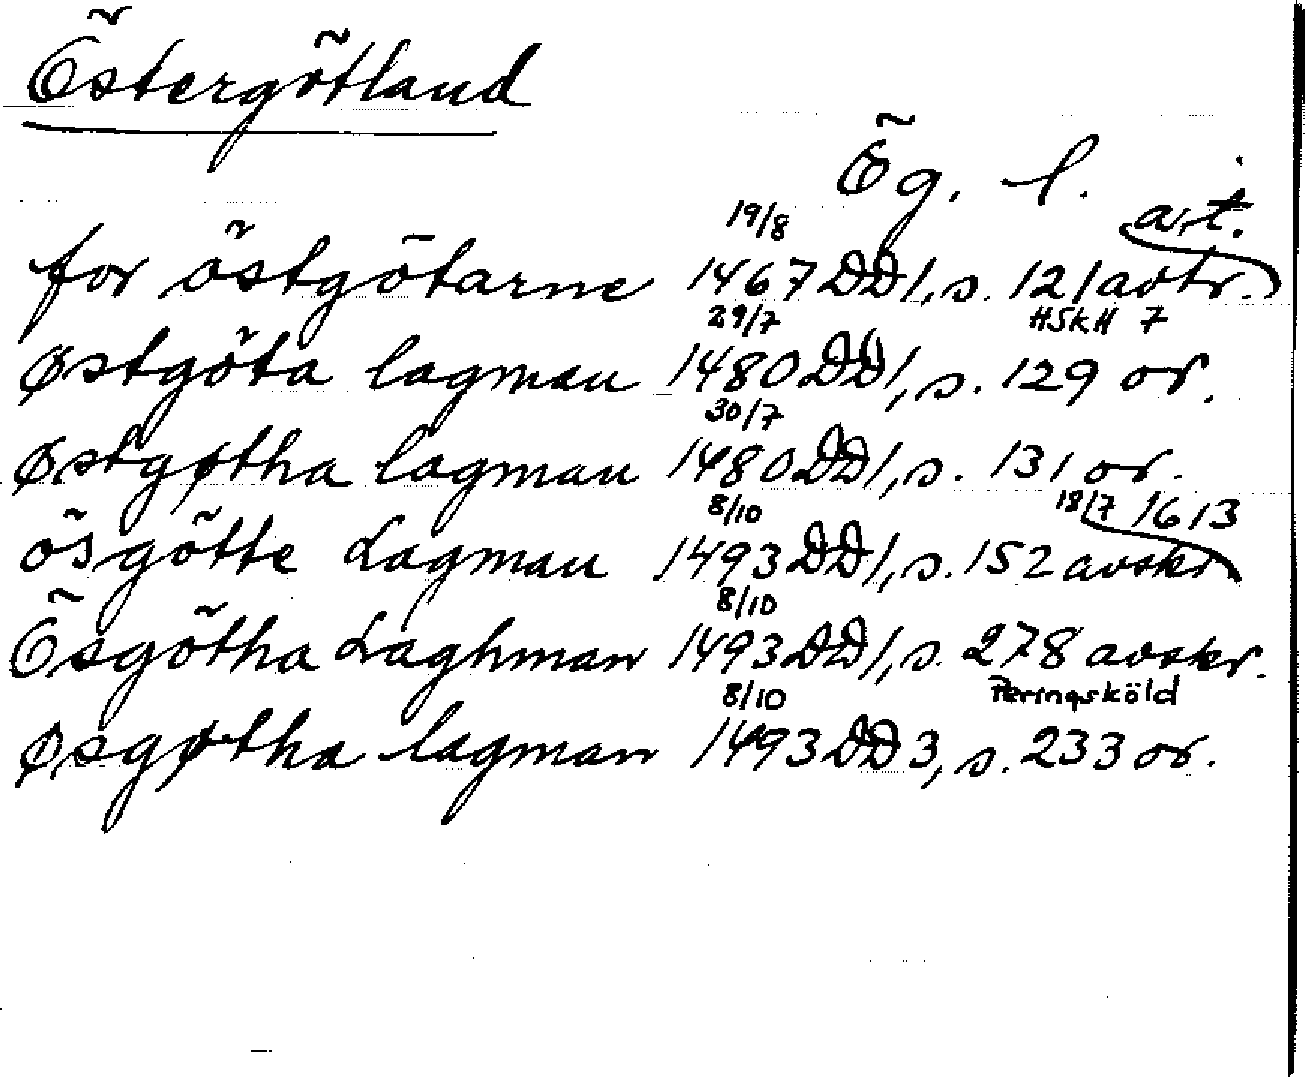 Östergötland
Ög. l.
19/8 a.t.
for östgötarne 1467 DD1, s. 121 avtr.
29/7 HSkH 7
østgöta lagman 1480 DD1, s. 129 or.
30/7
østgøtha lagman 1480 DD1, s. 131 or.
8/10 18/7 1613
ösgötte Lagman 1493 DD1, s. 152 avskr
8/10
Ösgötha Laghman 1493 DD1, s. 278 avskr.
8/10 Peringsköld
øsgøtha lagman 1493 DD3, s. 233 or.